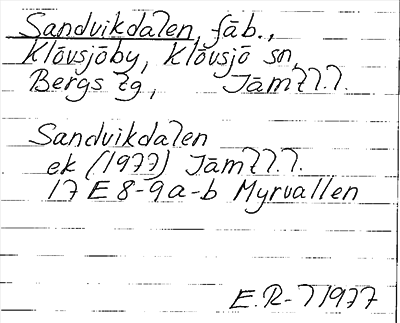 Sandvikdalen, fäb.,
Klövsjöby, Klövsjö sn,
Bergs tg, Jämtl.l.
Sandvikdalen
ek (1977) Jämtl.l.
17 E 8-9 a-b Myrvallen
E.R-71977